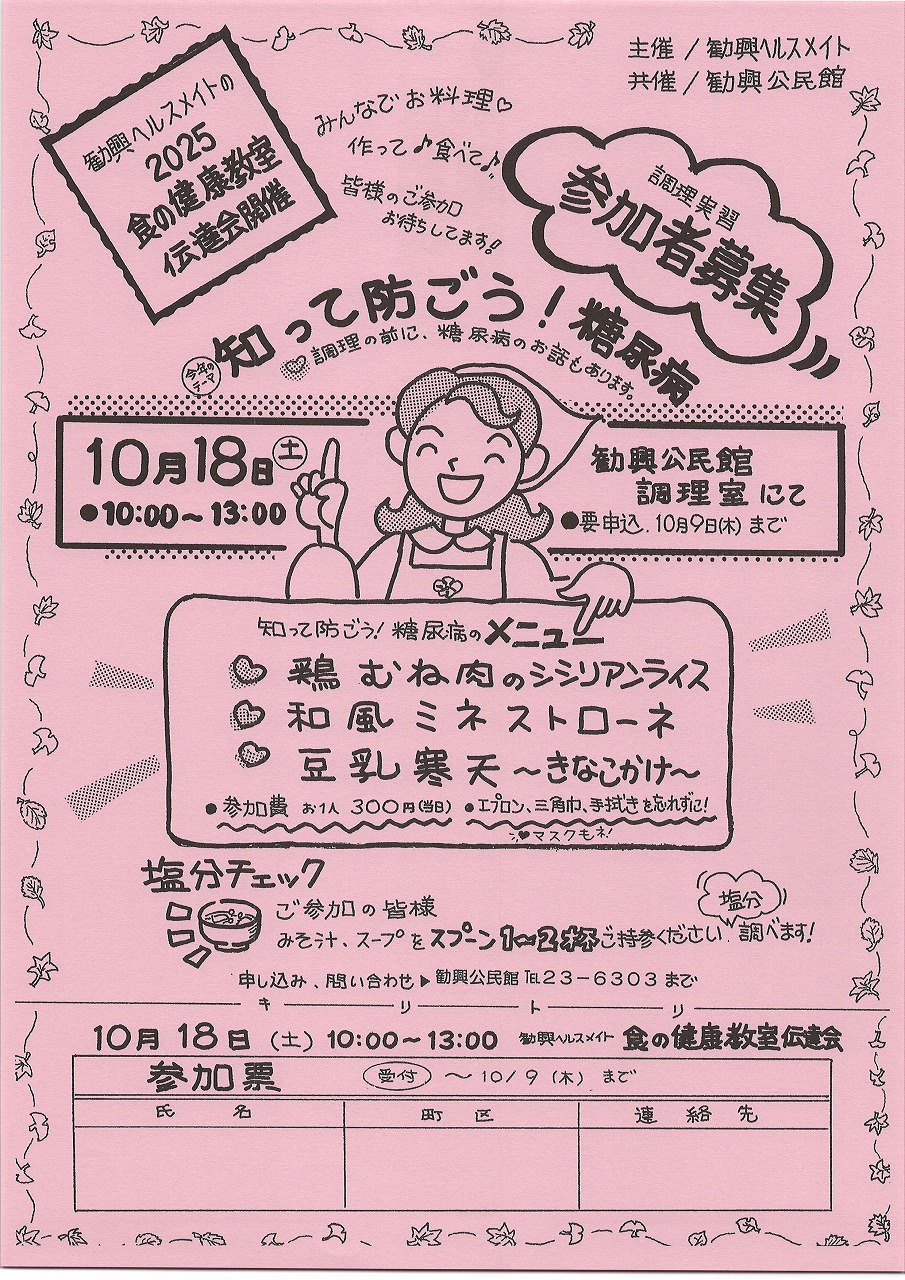 主催 / 勧興ヘルスメイト
共催 / 勧興公民館
勧興ヘルスメイトの
2025
食の健康教室
伝達会開催
みんなでお料理♡
作って♪食べて♪
皆様のご参加
お待ちしてます!
調理実習
参加者募集
今年のテーマ
知って防ごう!糖尿病
調理の前に、糖尿病のお話もあります。
10月18日(土)
●10:00~13:00
勧興公民館
調理室にて
●要申込.10月9日(木)まで
知って防ごう!糖尿病のメニュー
鶏むね肉のシシリアンライス
和風ミネストローネ
豆乳寒天~きなこかけ~
●参加費 お1人 300円(当日) ●エプロン、三角巾、手拭きを忘れずに!
マスクもネ!
塩分チェック
ご参加の皆様
みそ汁、スープをスプーン1~2杯ご持参ください 塩分調べます!
申し込み、問い合わせ▶勧興公民館 TEL23-6303まで
キリトリ
10月18日(土)10:00~13:00 勧興ヘルスメイト 食の健康教室伝達会
参加票 受付 ~10/9(木)まで
氏名 町区 連絡先